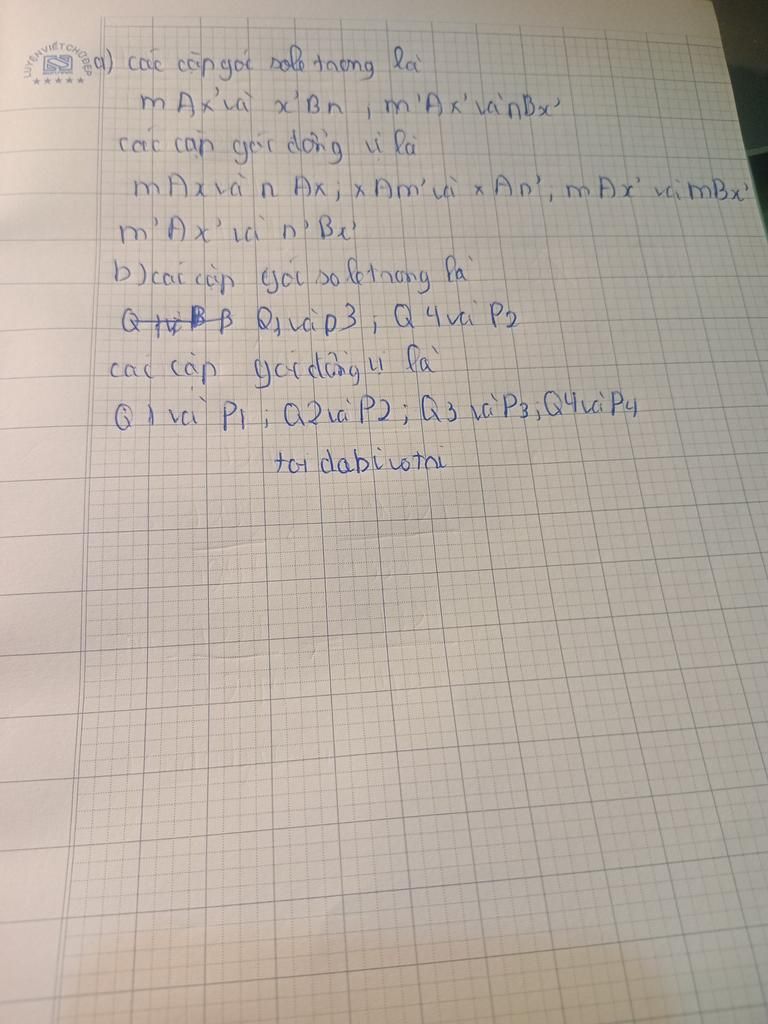 LUYỆN VIẾT CHỮ ĐẸP
a) các cặp góc sole trong là
mAx' và x'Bn , m'Ax' và nBx'
các cặp góc đồng vị là
mAx và nAx ; xAm' và xAn' ; mAx' và mBx'
m'Ax' và n'Bx'
b) các cặp góc so le trong là
Q1 và p3 ; Q4 và P2
các cặp góc đồng vị là
Q1 và P1 ; Q2 và P2 ; Q3 và P3 ; Q4 và P4